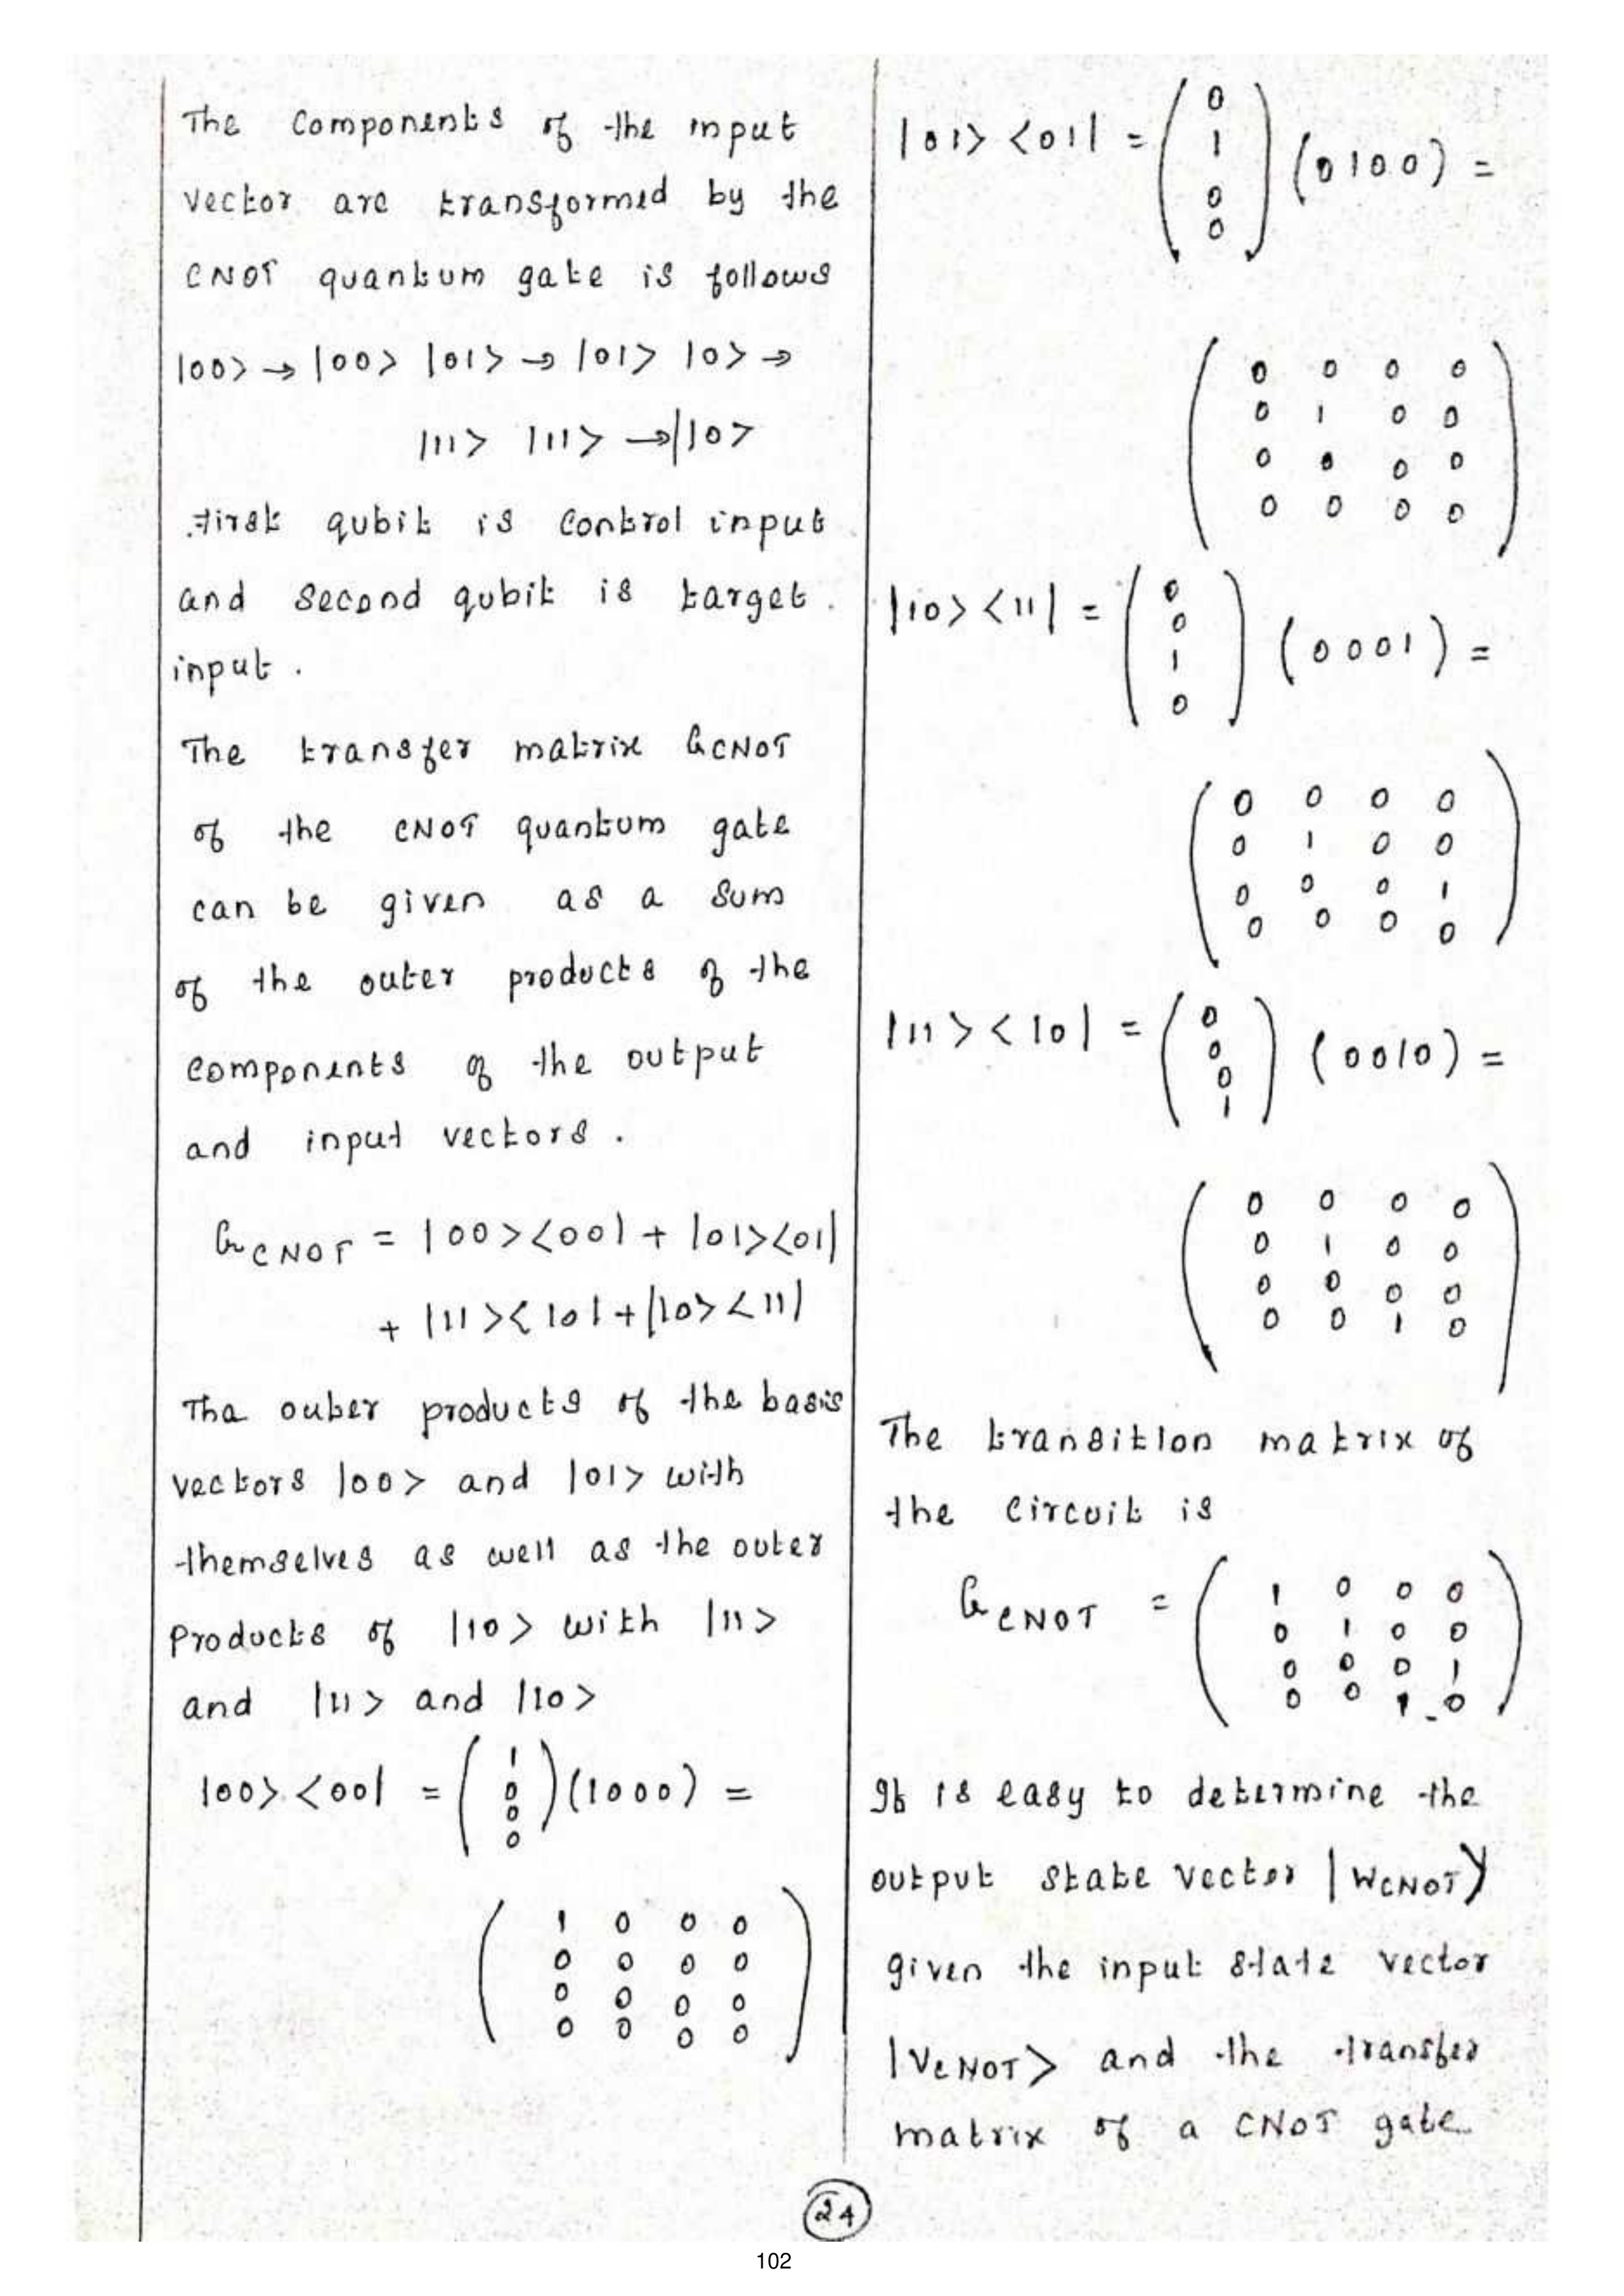 The components of the input
vector are transformed by the
CNOT quantum gate is follows
|00> → |00> |01> → |01> |0> →
|11> |11> → |10>
First qubit is control input
and second qubit is target.
input.
The transfer matrix GCNOT
of the CNOT quantum gate
can be given as a sum
of the outer products of the
components of the output
and input vectors.
GCNOT = |00><00| + |01><01|
+ |11><10| + |10><11|
Tha outer products of the basis
vectors |00> and |01> with
themselves as well as the outer
Products of |10> with |11>
and |11> and |10>
|00><00| = (1 0 0 0) (1000) =
1 0 0 0
0 0 0 0
0 0 0 0
0 0 0 0
|01><01| = (0 1 0 0) (0100) =
0 0 0 0
0 1 0 0
0 0 0 0
0 0 0 0
|10><11| = (0 0 1 0) (0001) =
0 0 0 0
0 1 0 0
0 0 0 1
0 0 0 0
|11><10| = (0 0 0 1) (0010) =
0 0 0 0
0 1 0 0
0 0 0 0
0 0 1 0
The transition matrix of
the circuit is
GCNOT =
1 0 0 0
0 1 0 0
0 0 0 1
0 0 1 0
It is easy to determine the
output state vector |WCNOT>
given the input state vector
|VCNOT> and the transfer
matrix of a CNOT gate
24
102